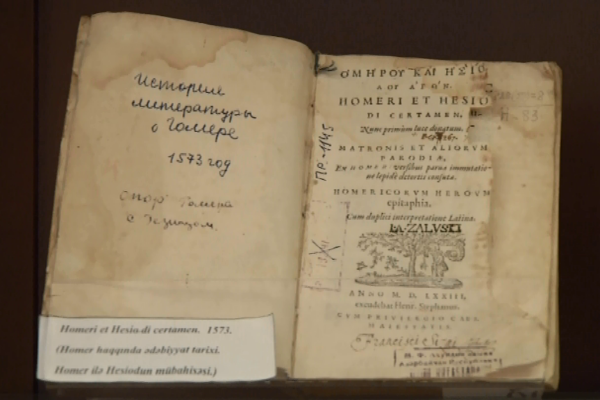 История
литературы
о Гомере
1573 год
спор Гомера
с Гезиодом.
Homeri et Hesio di certamen. 1573.
(Homer haqqında ədəbiyyat tarixi.
Homer ilə Hesiodun mübahisəsi.)
ΟΜΗΡΟΥ ΚΑΙ ΗΣΙΟ
ΔΟΥ ΑΓΩΝ.
HOMERI ET HESIO
DI CERTAMEN,
Nunc primùm luce donatum.
MATRONIS ET ALIORVM
PARODIÆ,
Ex HOMERI versibus parua immutatio-
ne lepidè detortis consutæ.
HOMERICORVM HEROVM
epitaphia.
Cum duplici interpretatione Latina.
I.A. ZALVSKI
ANNO M. D. LXXIII,
excudebat Henr. Stephanus.
CVM PRIVILEGIO CAES.
MAIESTATIS.
ПР.-1145